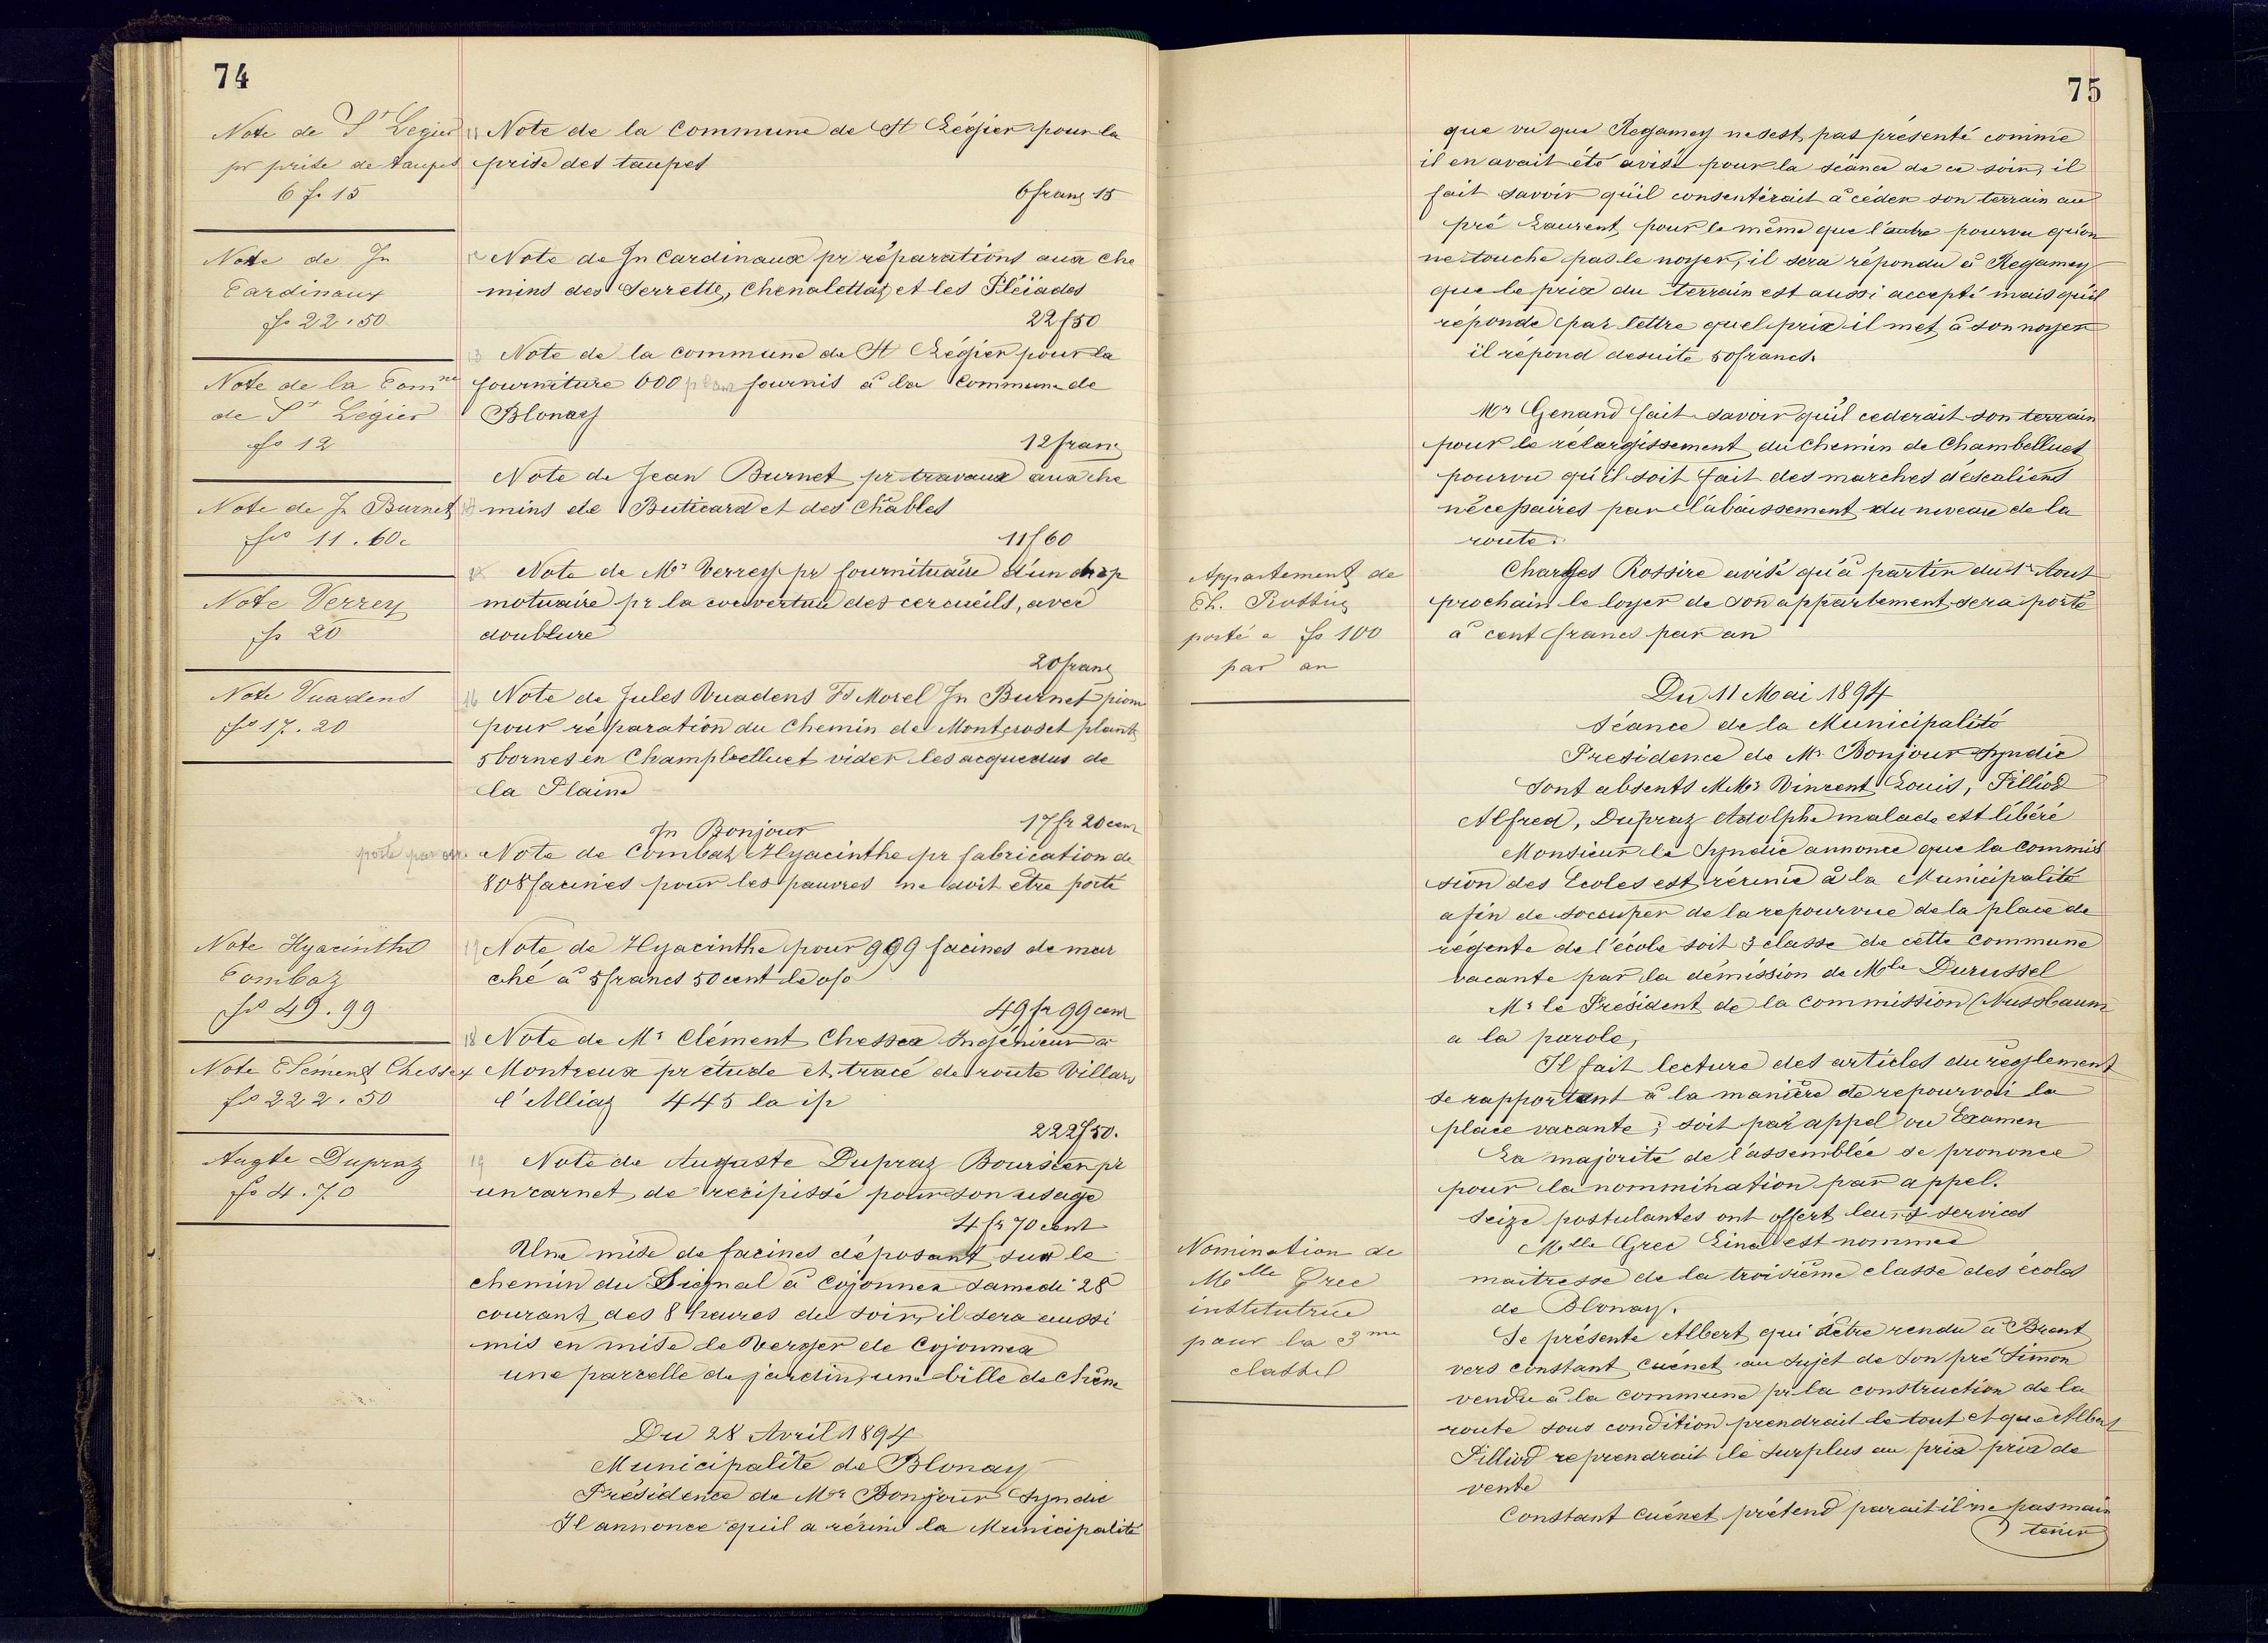 74
Note de St Legier
pr prise de taupes
6 fr 15
Note de Jn
Cardinaux
fr 22.50
Note de la Comne
de St Légier
fr 12
Note de J. Burnet
frs 11.60c
Note Verrey
fr 20
Note Vuadens
frs 17.20
Note Hyacinthe
Combaz
frs 49.99
Note Clément Chessex
frs 222.50
Augte Dupraz
frs 4.70
11 Note de la Commune de St Légier pour la
prise des taupes
6 franc 15
12 Note de Jn Cardinaux pr réparations aux che
mins des Serrette, Chenalettaz et les Pléïades
22f50
13 Note de la commune de St Légier pour la
fourniture 600 plans fournis à la Commune de
Blonay
12 franc
Note de Jean Burnet pr travaux aux che
mins de Buticard et des Châbles
11f60
Note de Mr Verrey pr fournituaire d'un drap
motuaire pr la couverture des cercueils, avec
doublure
20 franc
16 Note de Jules Vuadens Fs Morel Jn Burnet pion
pour réparation du chemin de Monteroset plant
5 bornes en Champbelluet vider les acquedus de
la Plaine
17 fr 20 cent
Jn Bonjour
porté par
Note de Combaz Hyacinthe pr fabrication de
808 facines pour les pauvres ne doit être porté
17 Note de Hyacinthe pour 909 facines de mar
ché à 5 francs 50 cent le o/o
49 fr 99 cent
18 Note de Mr Clément Chessex Ingénieur à
Montreux pr étude et tracé de route Villars
l'Alliaz 445 la ip
222f50.
19 Note de Auguste Dupraz Boursier pr
un carnet de recipissé pour son usage
4 fr 70 cent
Une mise de facines déposant sur le
chemin du Signal à Cojonnex samedi 28
courant des 8 heures du soir, il sera aussi
mis en mise le verger de Cojonnex
une parcelle de jardin, une bille de chêne
Du 28 Avril 1894
Municipalité de Blonay
Présidence de Mr Bonjour Syndic
Il annonce qu'il a réuni la Municipalité
75
que vu que Regamey ne sest pas présenté comme
il en avait été avisé pour la séance de ce soir, il
fait savoir qu'il consentirait à céder son terrain au
pré Laurent pour le même que l'autre pourvu qu'on
ne touche pas le noyer, il sera répondu à Regamey
que le prix du terrain est aussi accepté mais qu'il
réponde par lettre quel prix il met à son noyer
il répond desuite 50 francs.
Mr Genand fait savoir qu'il cederait son terrain
pour le rélargissement du Chemin de Chambelluet
pourvu qu'il soit fait des marches d'escaliers
nécessaires par l'abaissement du niveau de la
route.
Appartement de
Ch. Rossire
porté a fr 100
par an
Charles Rossire avisé qu'à partir du 1r Aout
prochain le loyer de son appartement sera porté
à cent francs par an
Du 11 Mai 1894
Séance de la Municipalité
Presidence de Mr Bonjour Syndic
Sont absents MMrs Vincent Louis, Pilliod
Alfred, Dupraz Adolphe malade est libéré
Monsieur le Syndic annonce que la Commis
sion des Ecoles est réunie à la Municipalité
afin de soccuper de la repourvue de la place de
régente de l'école soit 3 classe de cette Commune
vacante par la démission de Mlle Durussel
Mr le Président de la commission (Nussbaum
a la parole,
Il fait lecture des articles du règlement
se rapportant à la manière de repourvoir la
place vacante; soit par appel ou Examen
La majorité de l'assemblée se prononce
pour la nommination par appel.
Seize postulantes ont offert leurs services
Nomination de
Melle Grec
institutrice
pour la 3me
classe
Melle Grec Lina est nommée
maitresse de la troisième classe des écoles
de Blonay.
Se présente Albert qui d'être rendu à Brent
vers constant Cuénet au sujet de son pré Simon
vendu à la commune pr la construction de la
route sous condition prendrait le tout et que Albert
Pilliod reprendrait le surplus au prix prix de
vente
Constant Cuénet prétend parait il ne pas main
tenir